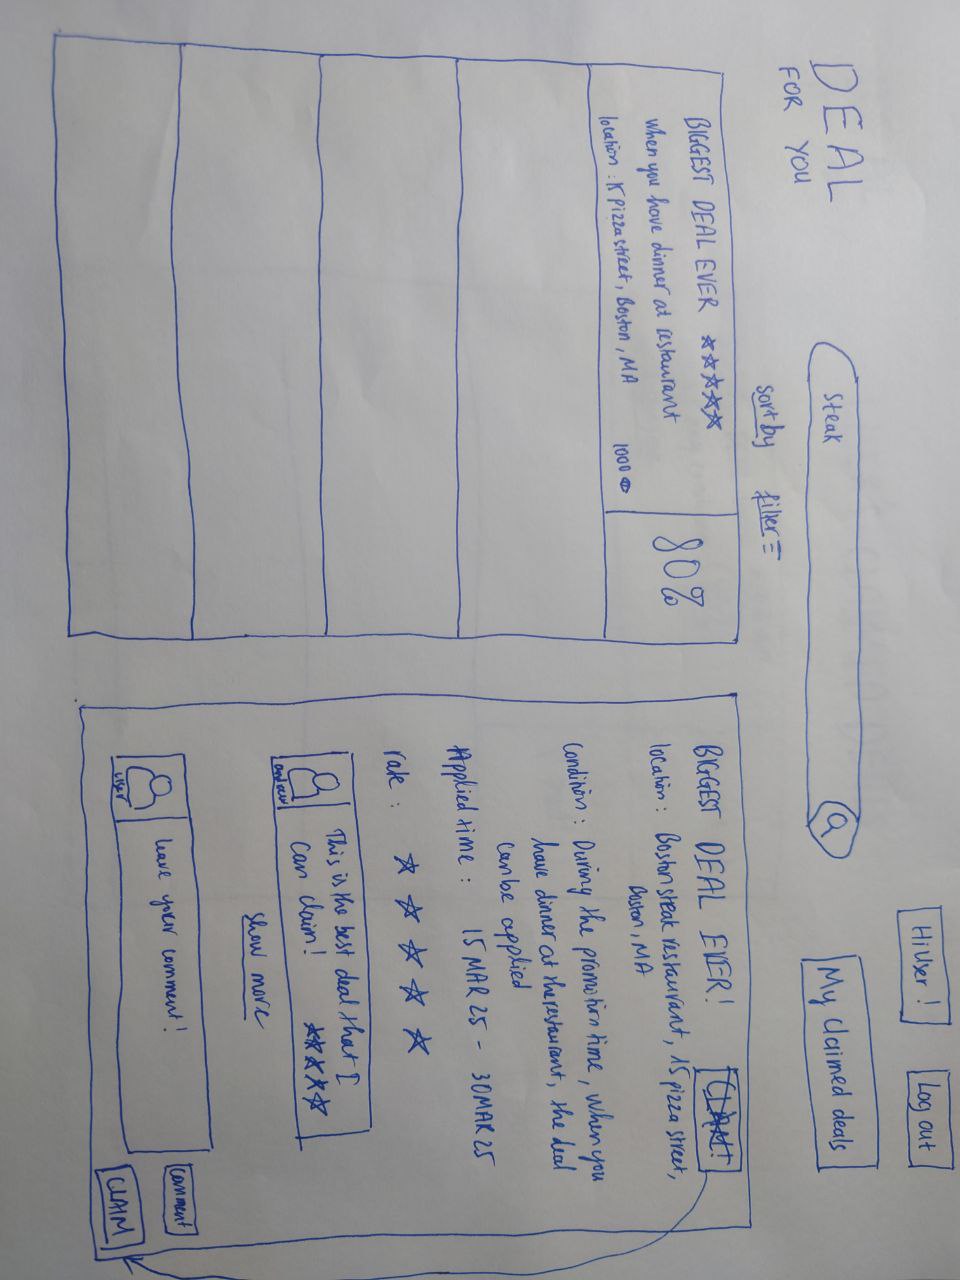 Hi User !
Log out
DEAL
FOR YOU
Steak
My Claimed deals
sort by
filter
BIGGEST DEAL EVER
when you have dinner at restaurant
location : 15 pizza street, Boston, MA
1000
80%
BIGGEST DEAL EVER!
CLAIM!
location : Boston steak restaurant, 15 pizza street,
Boston, MA
Condition : During the promotion time, when you
have dinner at the restaurant, the deal
can be applied
Applied time : 15 MAR 25 - 30 MAR 25
rate :
This is the best deal that I
can claim!
andrew
show more
leave your comment!
user
comment
CLAIM